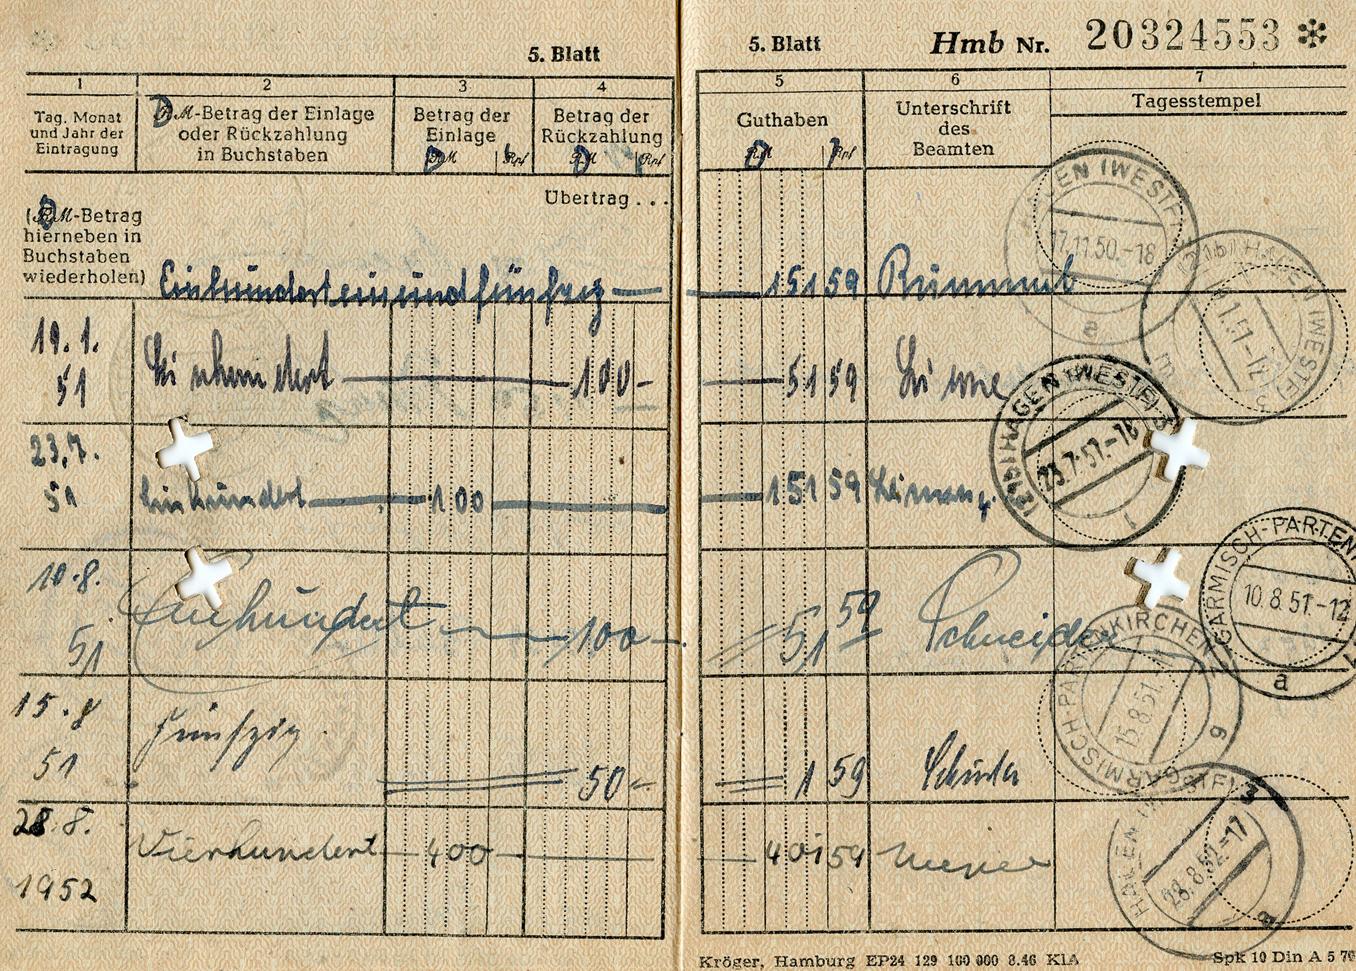 5. Blatt
1 2 3 4
Tag. Monat
und Jahr der
Eintragung
DM-Betrag der Einlage
oder Rückzahlung
in Buchstaben
Betrag der
Einlage
Betrag der
Rückzahlung
Übertrag . . .
(DM-Betrag
hierneben in
Buchstaben
wiederholen)
Einhundert einundfünfzig
19.1.
51
Einhundert 100-
23.7.
51
Einhundert 100
10.8.
51
Einhundert 100-
15.8
51
Fünfzig 50-
28.8.
1952
Vierhundert 400
5. Blatt
Hmb Nr. 20324553 *
5 6 7
Guthaben
Unterschrift
des
Beamten
Tagesstempel
151 59
51 59
151 59
51 59 Schneider
1 59
401 59
HAGEN (WESTF)
17.11.50.-18
a
HAGEN (WESTF)
HAGEN (WESTF)
23.7.51.-18
GARMISCH-PARTEN
10.8.51.-12
a
GARMISCH-PARTENKIRCHEN
15.8.51.
HAGEN (WESTF)
28.8.52.-17
Kröger, Hamburg EP24 129 100 000 3.46 KlA
Spk 10 Din A 5 70